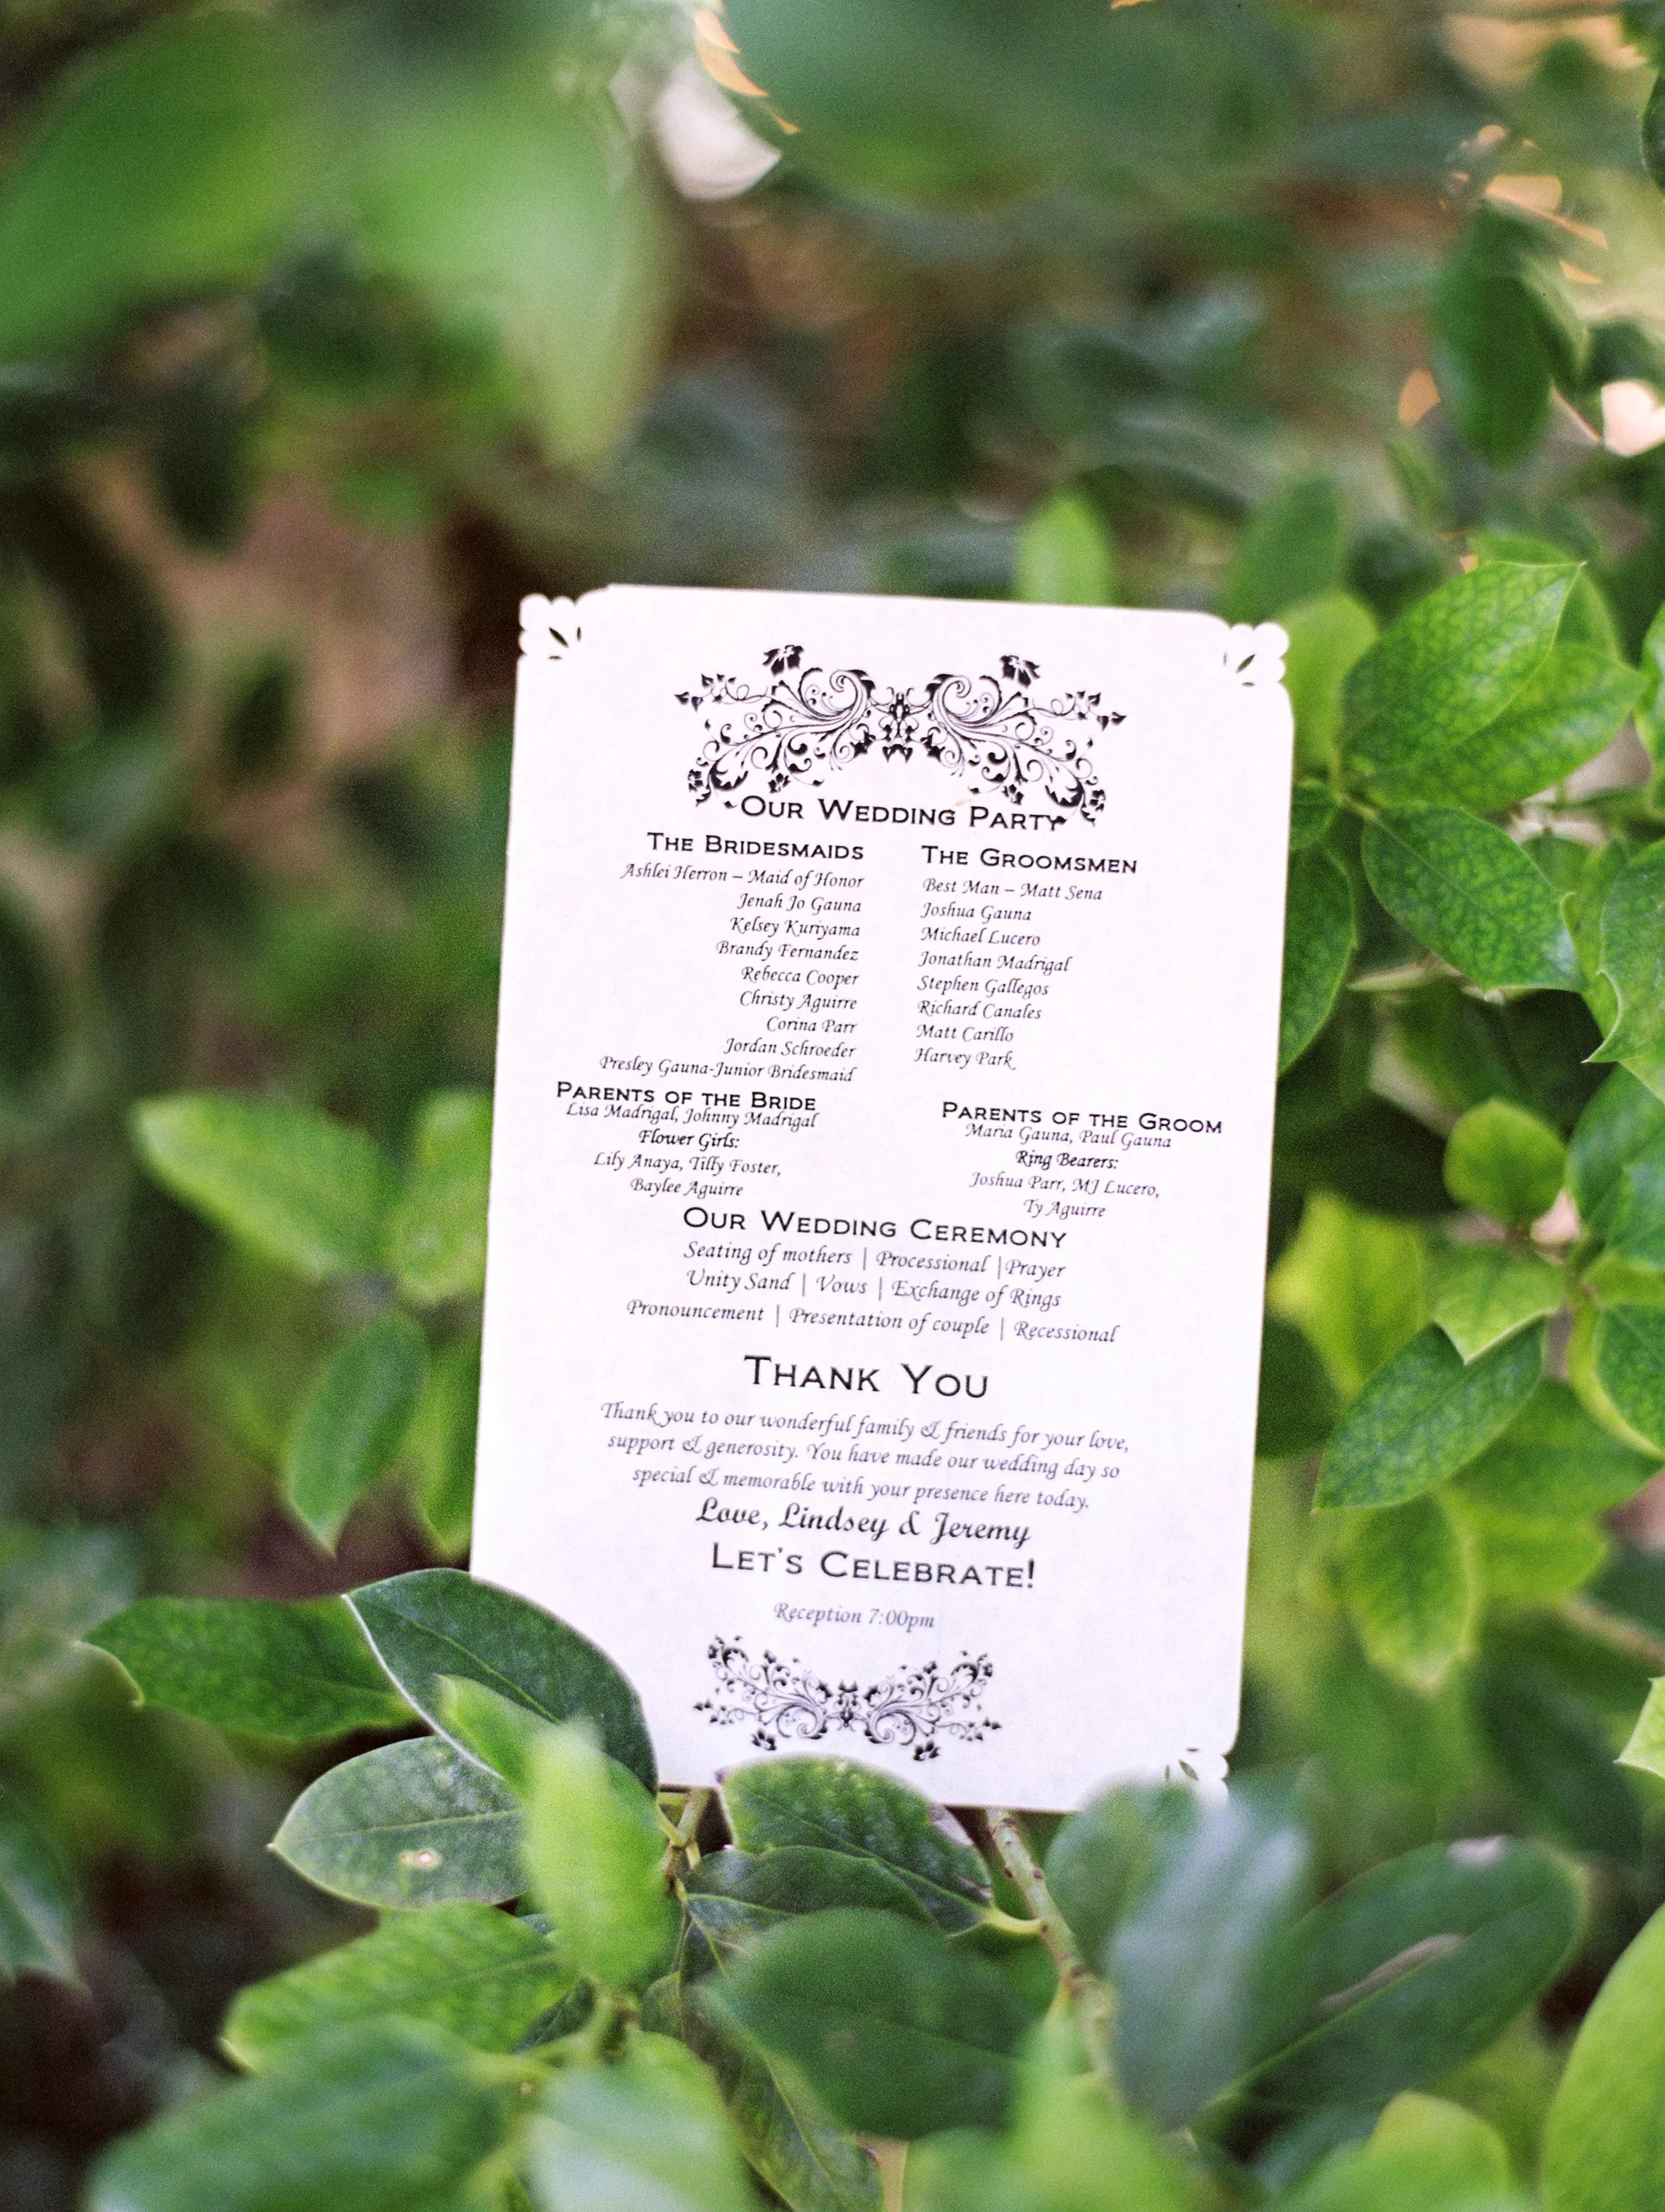 Our Wedding Party
The Bridesmaids
Ashlei Herron – Maid of Honor
Jenah Jo Gauna
Kelsey Kuriyama
Brandy Fernandez
Rebecca Cooper
Christy Aguirre
Corina Parr
Jordan Schroeder
Presley Gauna-Junior Bridesmaid
The Groomsmen
Best Man – Matt Sena
Joshua Gauna
Michael Lucero
Jonathan Madrigal
Stephen Gallegos
Richard Canales
Matt Carillo
Harvey Park
Parents of the Bride
Lisa Madrigal, Johnny Madrigal
Flower Girls:
Lily Anaya, Tilly Foster,
Baylee Aguirre
Parents of the Groom
Maria Gauna, Paul Gauna
Ring Bearers:
Joshua Parr, MJ Lucero,
Ty Aguirre
Our Wedding Ceremony
Seating of mothers | Processional |Prayer
Unity Sand | Vows | Exchange of Rings
Pronouncement | Presentation of couple | Recessional
Thank You
Thank you to our wonderful family & friends for your love,
support & generosity. You have made our wedding day so
special & memorable with your presence here today.
Love, Lindsey & Jeremy
Let's Celebrate!
Reception 7:00pm